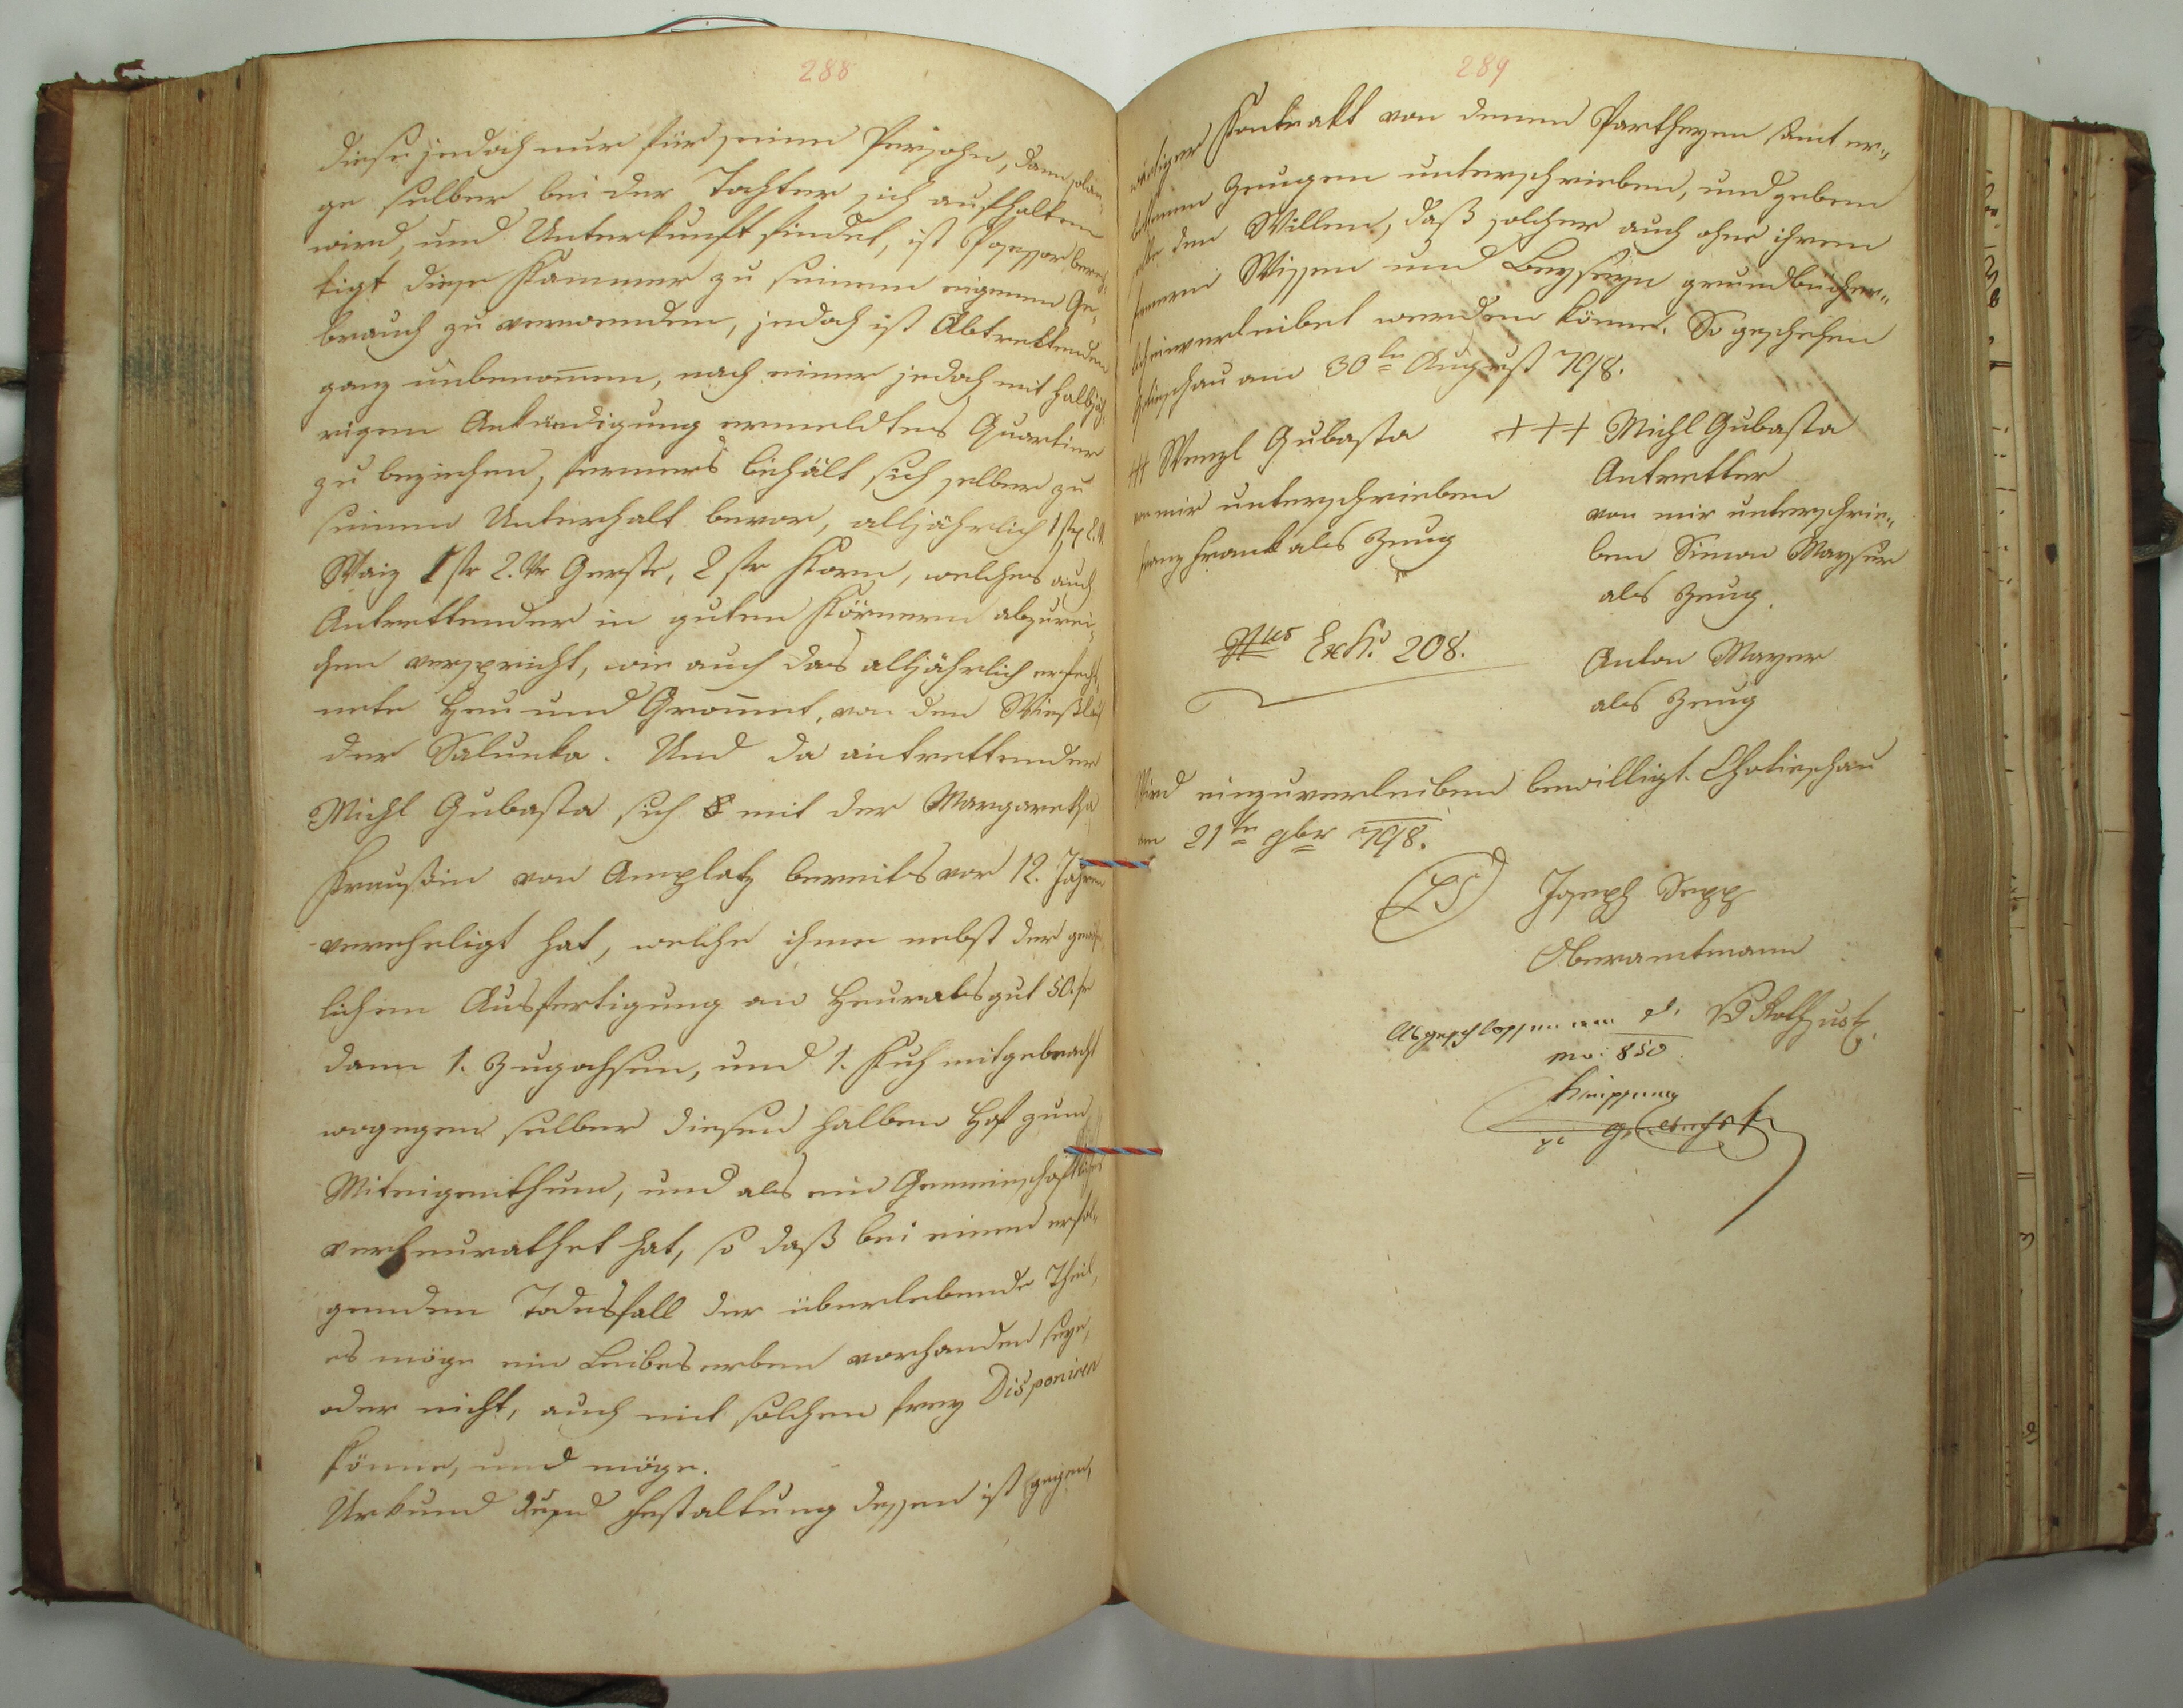 288
diese jedoch nur für seine Persohn, dann solan„
ge selber bei der Tochter sich aufhalten
wird, und Unterkunft findet, ist Possessor berech„
tigt diese Kammer zu seinem eigenen Ge„
brauch zu verwenden, jedoch ist Abtrettenden
ganz unbenomen, nach einer jedoch mit halbjäh„
rigen Ankündigung ermeldtes Quartier
zu beziehen, ferners behält sich selber zu
seinen Unterhalt bevor, alljährlich 1 str 2. Vr
Waiz 1 str 2. Vr Gerste, 2 str Korn, welches auch
Antrettender in guten Körnern abzurei„
chen verspricht, wie auch das alljährlich erfech„
nete Heu und Gromet, von den
der Salunka. Und da antrettender
Michl Gubasta sich mit der Margaretha
Kraußin von Amplatz bereits vor 12. Jahren
vereheligt hat, welche ihme nebst der
lichen Ausfertigung an Heurathsgut 50. fr
dann 1. Zugochsen, und 1. Kuh mitgebracht
wogegen selber diesen halben Hof zum
Miteigenthum, und als ein Gemeinschaftliches
verheurathet hat, so daß bei einen erfol„
genden Todesfall der überlebende Theil,
es möge ein Leibeserben vorhanden seye,
oder nicht, auch mit solchen frey Disponiren
könne, und möge.
Urkund und Festhaltung dessen ist gegen„
289
wärtiger Kontrakt von denen Partheyen samt er„
bettenen Zeugen unterschrieben, und geben
den Willen, daß solcher auch ohne ihren
ferneren Wissen und Beyseyn grundbücher„
lich einverleibet werden könne. So geschehen
Chotieschau am 30ten August 7918.
+++ Wenzl Gubasta +++ Michl Gubasta
von mir unterschrieben Antretter
Franz Frank als Zeug von mir unterschrie„
ben Simon Mayser
als Zeug.
Nus Exh. 208.
Anton Mayer
als Zeug
Wird einzuverleiben bewilligt. Chotieschau
am 21ten 9br 7918.
(LS) Joseph Sepp
Oberamtmann
850